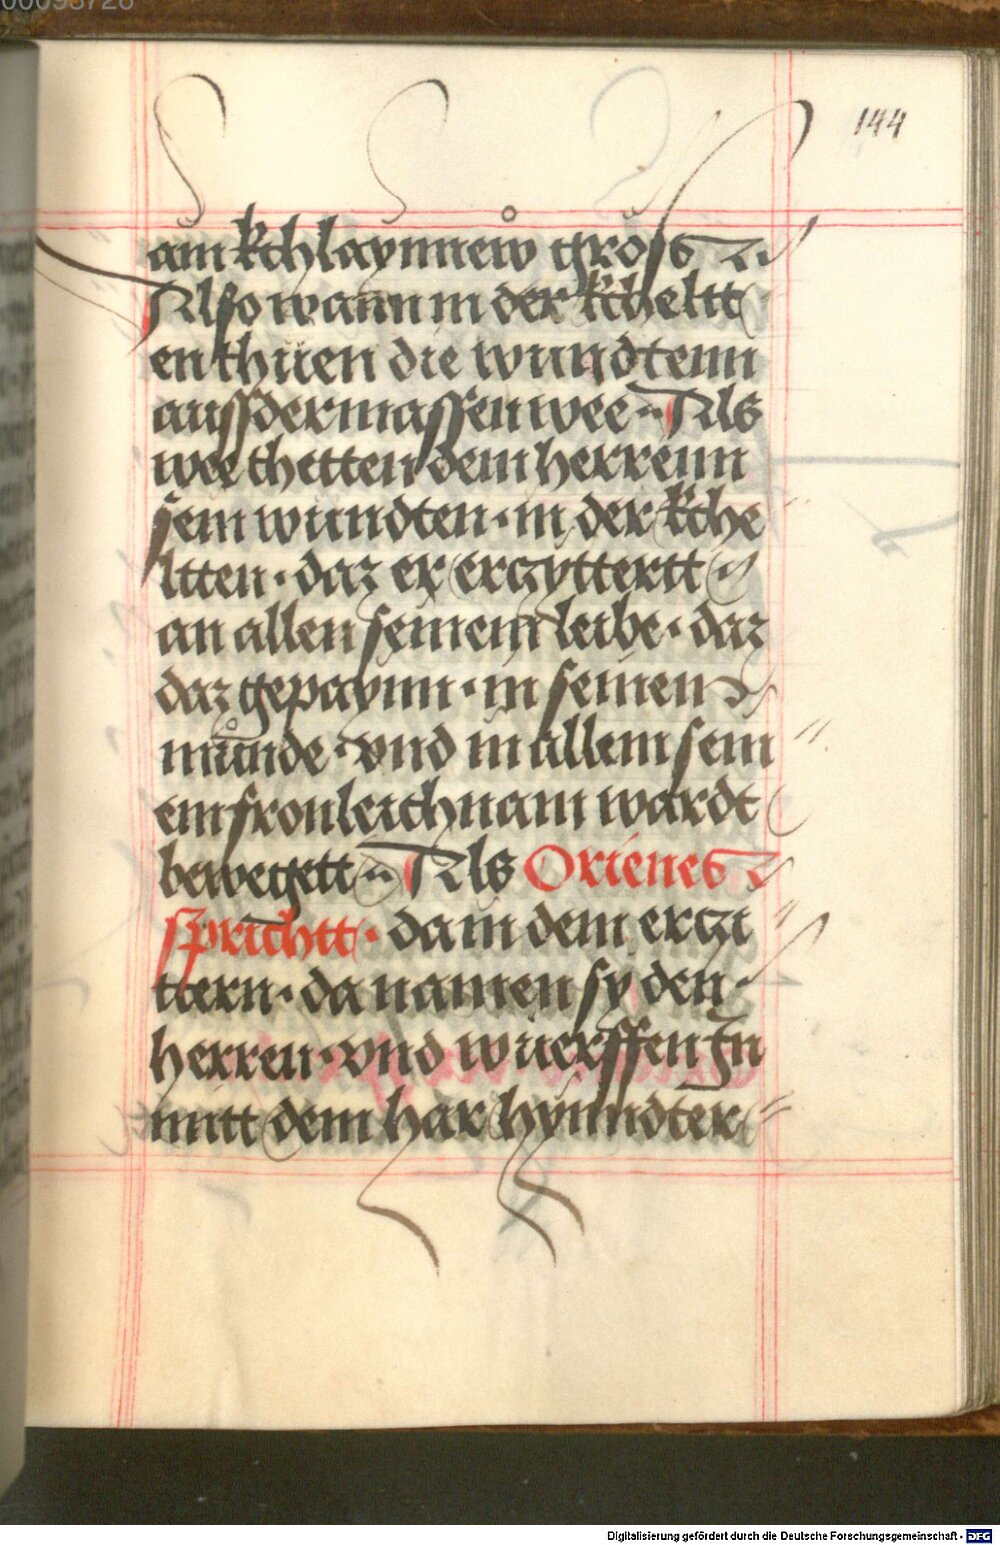 00093726
144
ain kchlaynnew gross
Also wann in der kcheltt
en thuen die wundtenn
aussdermassen wee Als
wee thetten dem herrenn
sein wundten · in der kche
ltten · daz er erczyttertt
an allen seinem leibe · daz
daz gepaynn · in seinen
munde · vnd in allem sein
em fronleichnam wardt
bewegett Als Orienes
sprichtt · da in dem erczi
ttern · da namen sy den ·
herren · vnd wuerffen In
mitt dem har hynndter
Digitalisierung gefördert durch die Deutsche Forschungsgemeinschaft · DFG